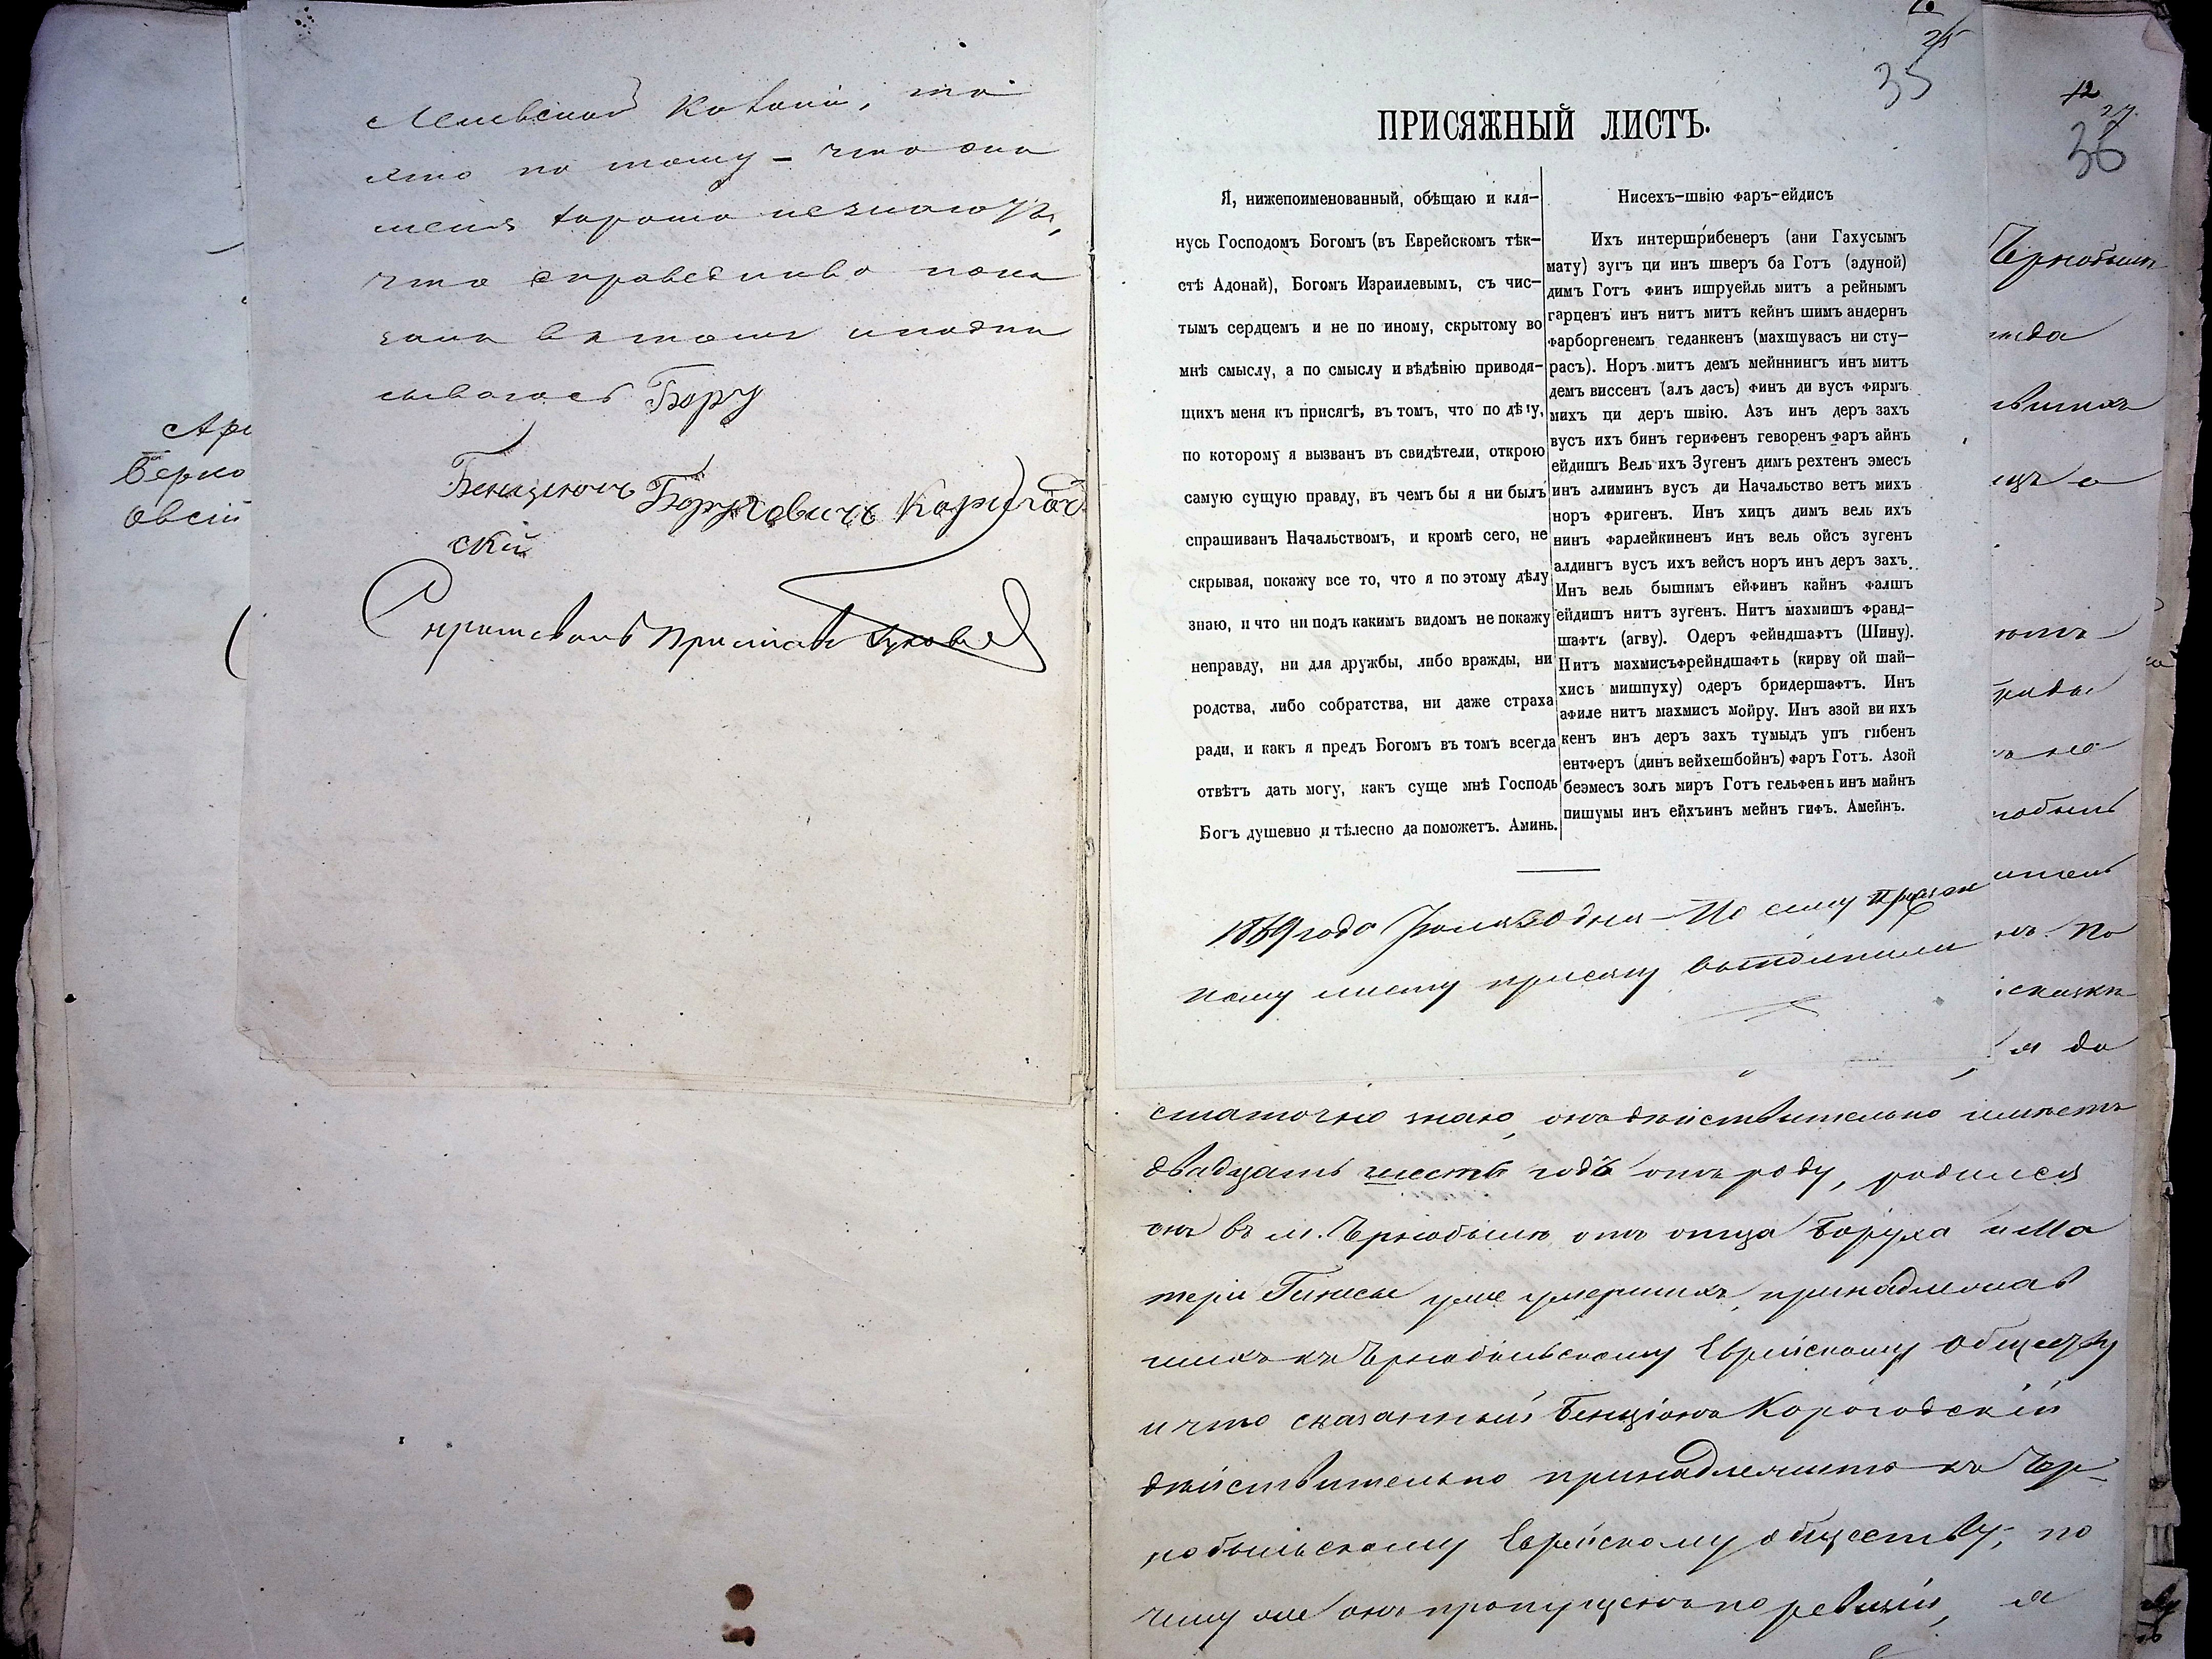 то
это по тому - что она
меня хорошо незнаютъ,
что справедливо пока
залъ въ томъ и подпи
сываюсь Бору
Бенцыонъ Боруховичъ Каригод
скій
Спрашивалъ Приставъ
Арі
Берко
овсій
25
35
ПРИСЯЖНЫЙ ЛИСТЪ.
Я, нижепоименованный, обѣщаю и кля-
нусь Господомъ Богомъ (въ Еврейскомъ тѣк-
стѣ Адонай), Богомъ Израилевымъ, съ чис-
тымъ сердцемъ и не по иному, скрытому во
мнѣ смыслу, а по смыслу и вѣдѣнію приводя-
щихъ меня къ присягѣ, въ томъ, что по дѣлу,
по которому я вызванъ въ свидѣтели, открою
самую сущую правду, въ чемъ бы я ни былъ
спрашиванъ Начальствомъ, и кромѣ сего, не
скрывая, покажу все то, что я по этому дѣлу
знаю, и что ни подъ какимъ видомъ не покажу
неправду, ни для дружбы, либо вражды, ни
родства, либо собратства, ни даже страха
ради, и какъ я предъ Богомъ въ томъ всегда
отвѣтъ дать могу, какъ суще мнѣ Господь
Богъ душевно и тѣлесно да поможетъ. Аминь.
Нисехъ-швію фаръ-ейдисъ
Ихъ интершрибенеръ (ани Гахусымъ
мату) зугъ ци инъ шверъ ба Готъ (адуной)
димъ Готъ финъ ишруейль митъ а рейнымъ
гарценъ инъ нитъ митъ кейнъ шимъ андернъ
фарборгенемъ геданкенъ (махшувасъ ни сту-
расъ). Норъ митъ демъ мейннингъ инъ митъ
демъ виссенъ (алъ дасъ) финъ ди вусъ фирмъ
михъ ци деръ швію. Азъ инъ деръ захъ
вусъ ихъ бинъ герифенъ геворенъ фаръ айнъ
ейдишъ Вель ихъ Зугенъ димъ рехтенъ эмесъ
инъ алиминъ вусъ ди Начальство ветъ михъ
норъ фригенъ. Инъ хицъ димъ вель ихъ
нинъ фарлейкиненъ инъ вель ойсъ зугенъ
алдингъ вусъ ихъ вейсъ норъ инъ деръ захъ.
Инъ вель бышимъ ейфинъ кайнъ фалшъ
ейдишъ нитъ зугенъ. Нитъ махмишъ франд-
шафтъ (агву). Одеръ фейндшафтъ (Шину).
Нитъ махмисъфрейндшафтъ (кирву ой шай-
хисъ мишпуху) одеръ бридершафтъ. Инъ
афиле нитъ махмисъ мойру. Инъ азой ви ихъ
кенъ инъ деръ захъ тумыдъ упъ гибенъ
ентферъ (динъ вейхешбойнъ) фаръ Готъ. Азой
беэмесъ золъ миръ Готъ гельфень инъ майнъ
пишумы инъ ейхъинъ мейнъ гифъ. Амейнъ.
1869 года Іюля 30 дня По сему присяж
ному листу присягу выполнили
27
36
Чернобыль
По
да
статочно знаю, онъ дѣйствительно имѣетъ
двадцать шесть годъ отъ роду, родился
онъ въ м. Чернобылѣ отъ отца Боруха и Ма
тери Гинесы уже умершихъ, принадлежав
шихъ къ Чернобыльскому Еврейскому обществу
и что сказанный Бенціонъ Корогодскій
дѣйствительно принадлежитъ къ Чер-
нобыльскому Еврейскому обществу, по
чему же онъ пропущенъ по ревизіи, я